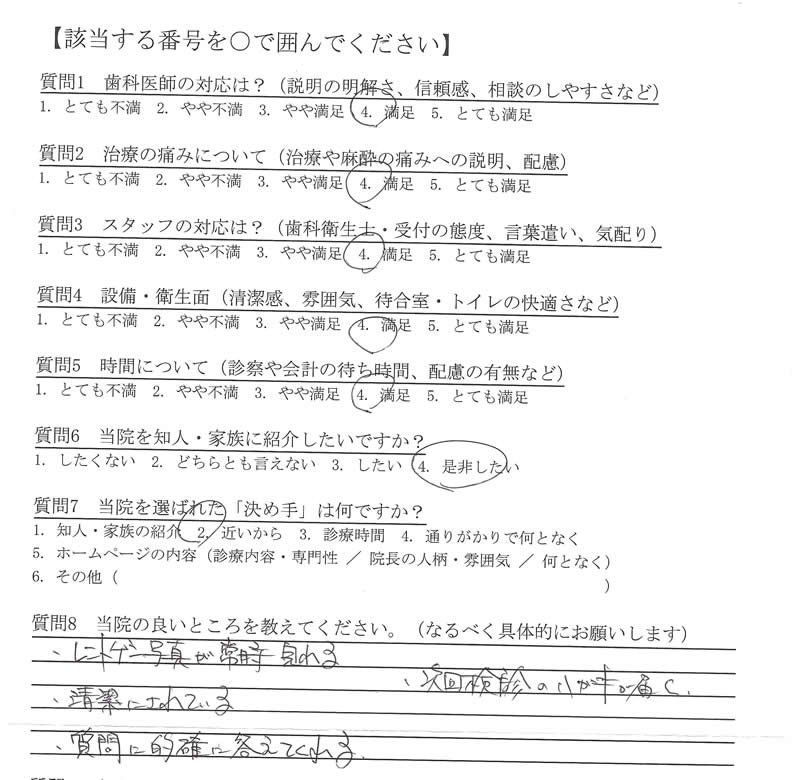 【該当する番号を○で囲んでください】
質問1　歯科医師の対応は？（説明の明解さ、信頼感、相談のしやすさなど）
1. とても不満　2. やや不満　3. やや満足　4. 満足　5. とても満足
質問2　治療の痛みについて（治療や麻酔の痛みへの説明、配慮）
1. とても不満　2. やや不満　3. やや満足　4. 満足　5. とても満足
質問3　スタッフの対応は？（歯科衛生士・受付の態度、言葉遣い、気配り）
1. とても不満　2. やや不満　3. やや満足　4. 満足　5. とても満足
質問4　設備・衛生面（清潔感、雰囲気、待合室・トイレの快適さなど）
1. とても不満　2. やや不満　3. やや満足　4. 満足　5. とても満足
質問5　時間について（診察や会計の待ち時間、配慮の有無など）
1. とても不満　2. やや不満　3. やや満足　4. 満足　5. とても満足
質問6　当院を知人・家族に紹介したいですか？
1. したくない　2. どちらとも言えない　3. したい　4. 是非したい
質問7　当院を選ばれた「決め手」は何ですか？
1. 知人・家族の紹介　2. 近いから　3. 診療時間　4. 通りがかりで何となく
5. ホームページの内容（診療内容・専門性 ／ 院長の人柄・雰囲気 ／ 何となく）
6. その他（　　　）
質問8　当院の良いところを教えてください。（なるべく具体的にお願いします）
、レントゲン写真が常時見れる
、次回検診のハガキが届く、
、清潔にされている
、質問に的確に答えてくれる、